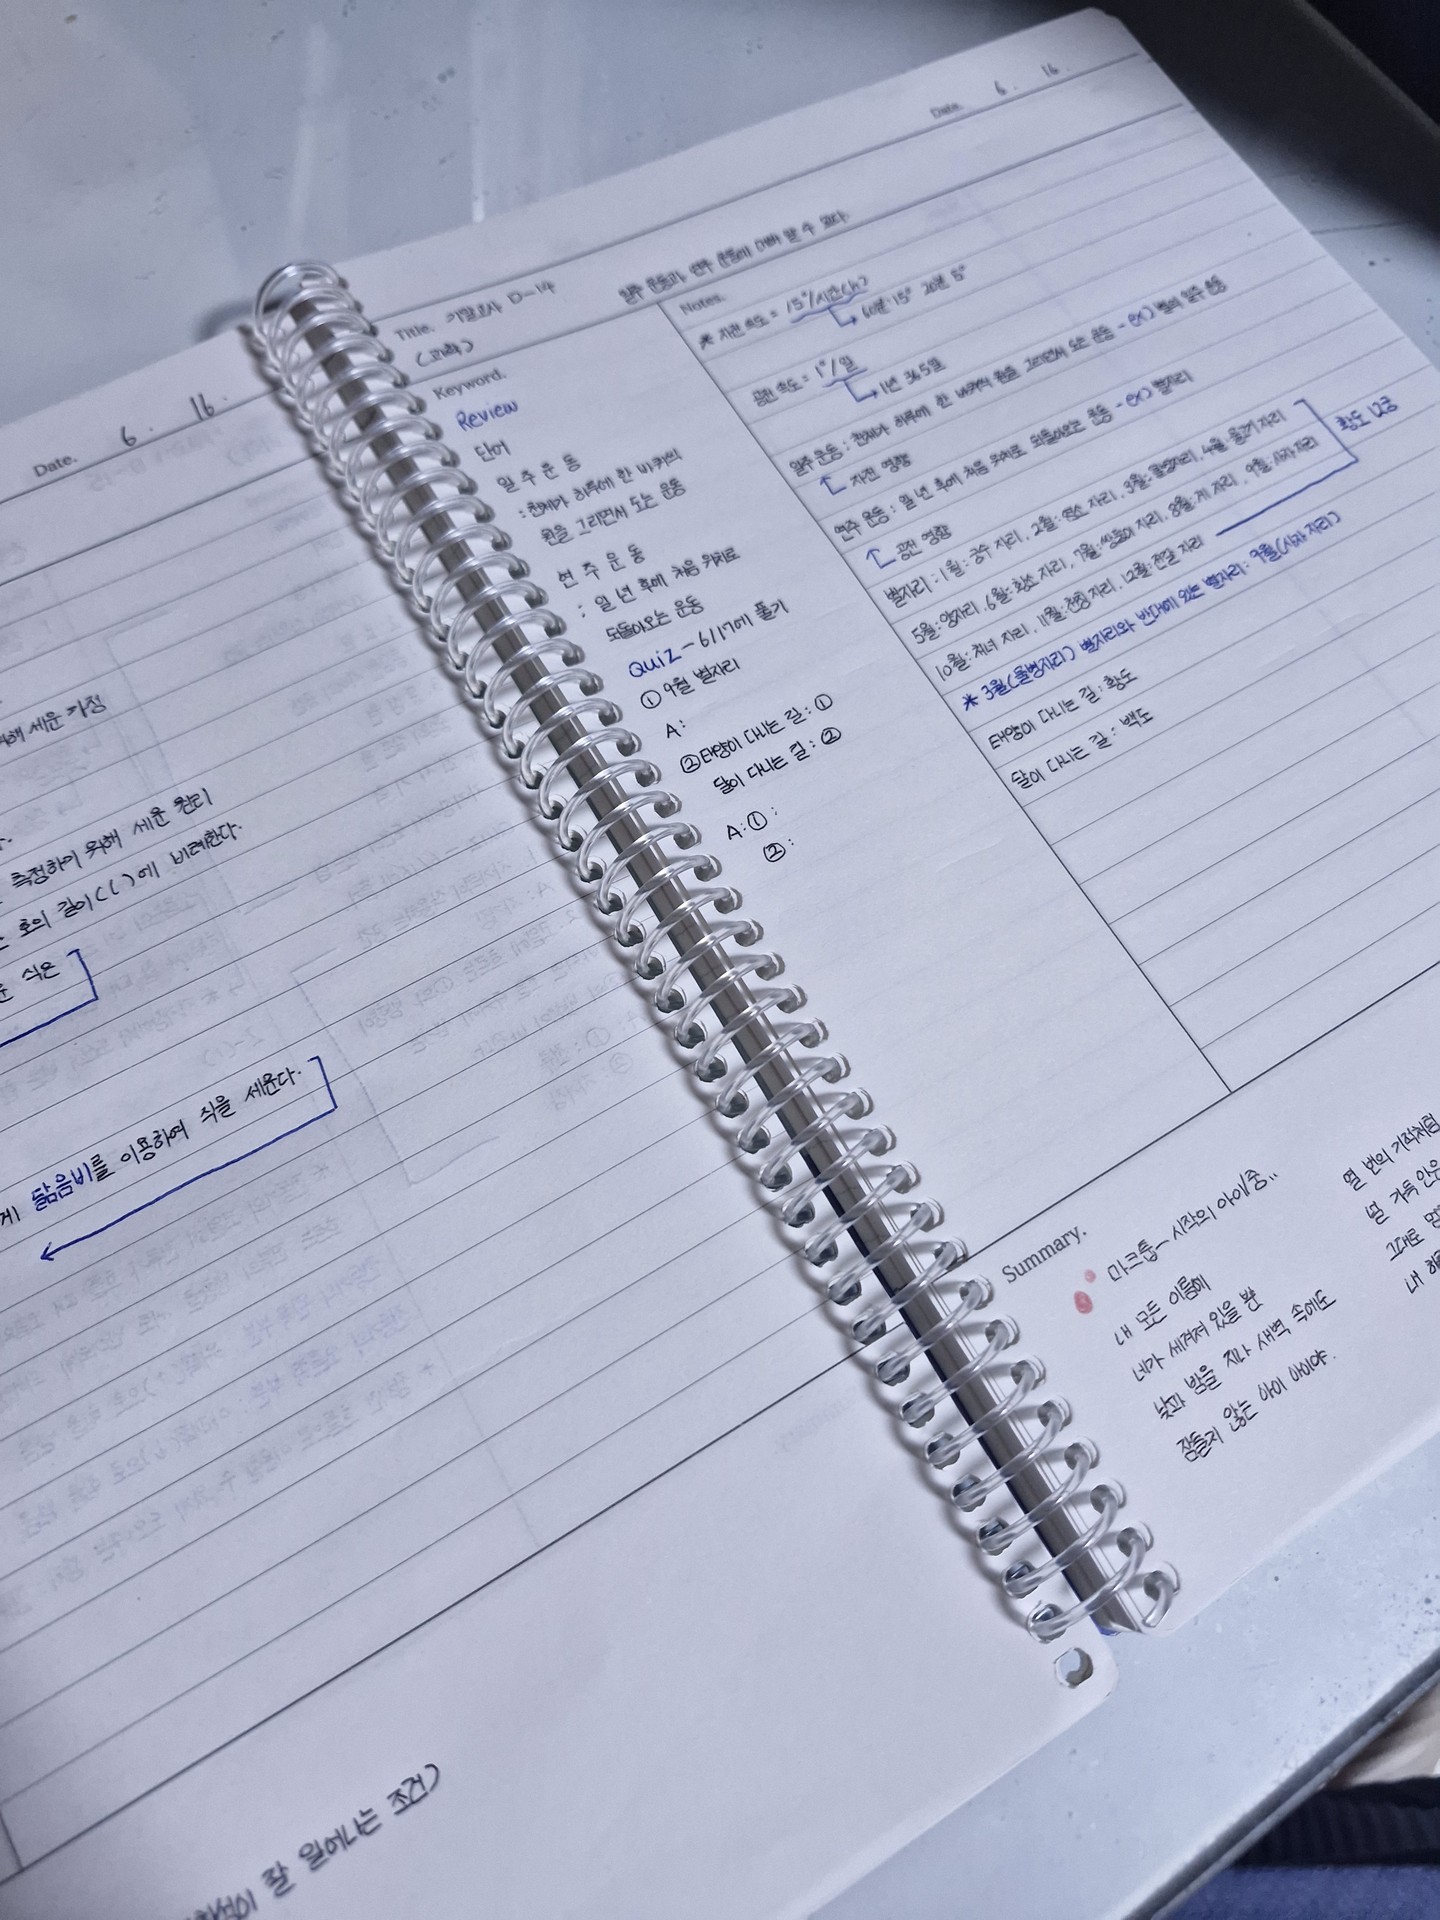 Date. 6. 16.
해 세운 가정
측정하기 위해 세운 원리
호의 길이(l)에 비례한다.
식은
게 닮음비를 이용하여 식을 세운다.
잘 일어나는 조건)
Date. 6. 16.
Title. 기말고사 D-14
(과학)
일주 운동과 연주 운동에 대해 알 수 있다.
Keyword.
Review
단어
일주운동
: 천체가 하루에 한 바퀴의
원을 그리면서 도는 운동
연주운동
: 일 년 후에 처음 위치로
되돌아오는 운동
Quiz - 6/17에 풀기
① 9월 별자리
A:
② 태양이 다니는 길: ①
달이 다니는 길: ②
A: ① :
② :
Notes.
* 자전 속도 = 15°/시간(h)
↳ 60분 15° 20분 5°
공전 속도 = 1°/일
↳ 1년 365일
일주 운동 : 천체가 하루에 한 바퀴의 원을 그리면서 도는 운동 - ex) 별의 일주 운동
자전 영향
연주 운동 : 일 년 후에 처음 위치로 되돌아오는 운동 - ex) 별자리
공전 영향
별자리 : 1월: 궁수 자리, 2월: 염소 자리, 3월: 물병자리, 4월: 물고기 자리
5월: 양자리, 6월: 황소 자리, 7월: 쌍둥이 자리, 8월: 게 자리, 9월: 사자 자리
10월: 처녀 자리, 11월: 천칭 자리, 12월: 전갈 자리
황도 12궁
* 3월(물병자리) 별자리와 반대에 있는 별자리: 9월(사자 자리)
태양이 다니는 길: 황도
달이 다니는 길: 백도
Summary.
마크툽 - 시작의 아이 中..
내 모든 이름에
네가 새겨져 있을 뿐
낮과 밤을 지나 새벽 속에도
잠들지 않는 아이 아이야.
열 번의 기적처럼
널 가득 안은
그대로
내